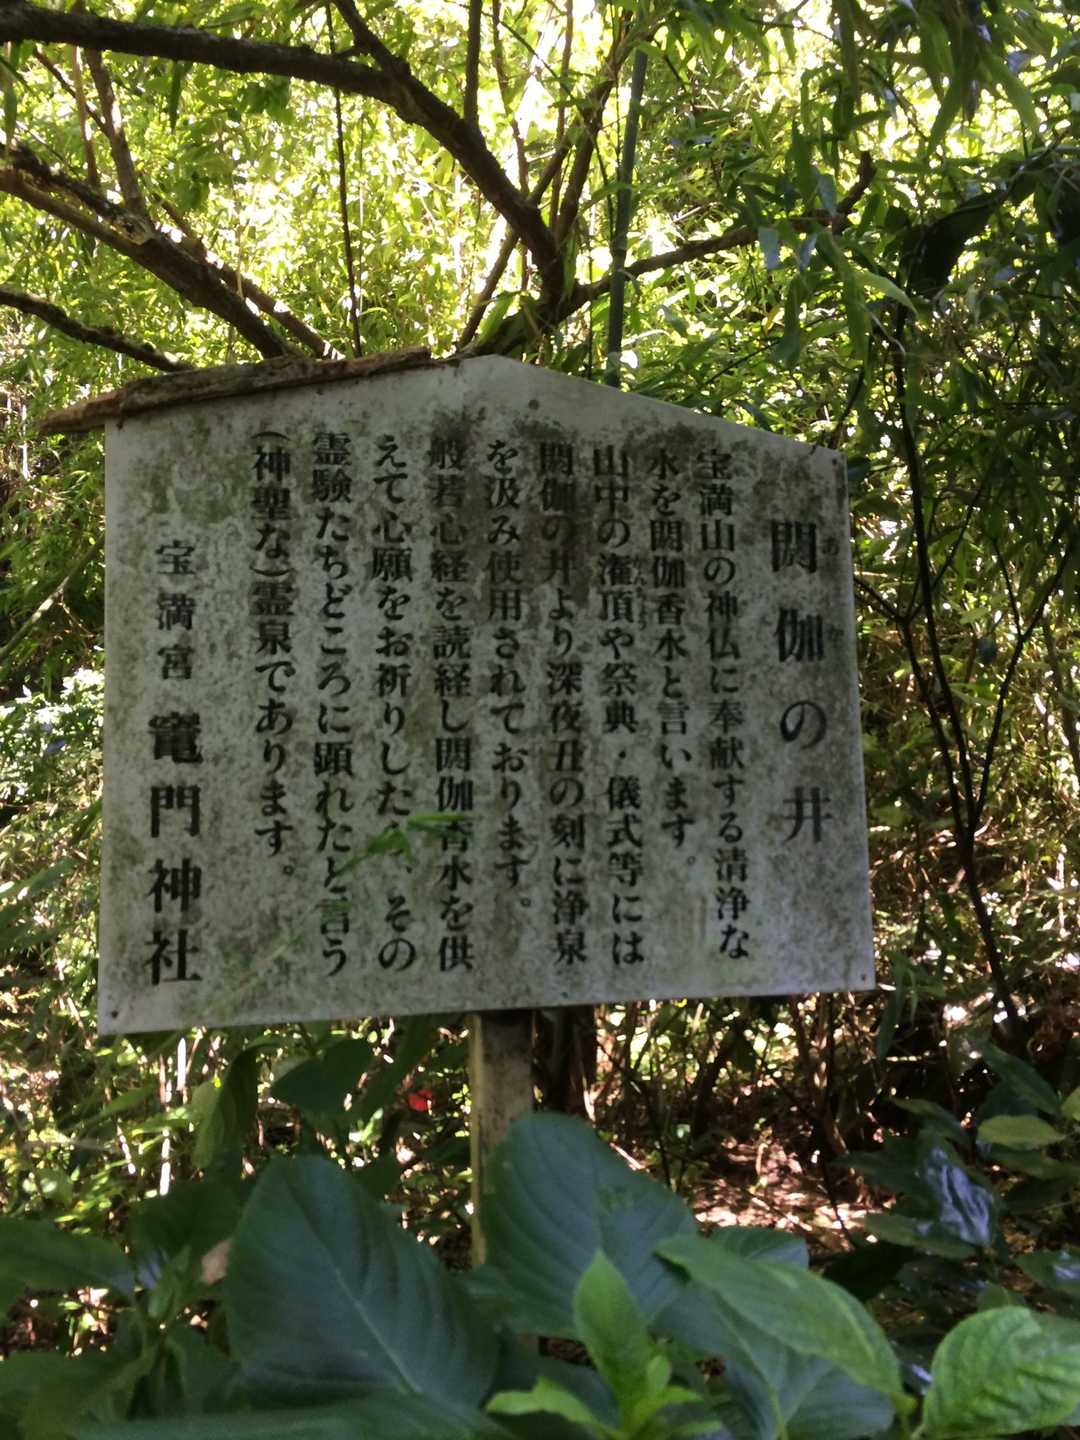 閼伽の井
宝満山の神仏に奉献する清浄な
水を閼伽香水と言います。
山中の潅頂や祭典・儀式等には
閼伽の井より深夜丑の刻に浄泉
を汲み使用されております。
般若心経を読経し閼伽香水を供
えて心願をお祈りした、その
霊験たちどころに顕れたと言う
(神聖な)霊泉であります。
宝満宮 竈門神社